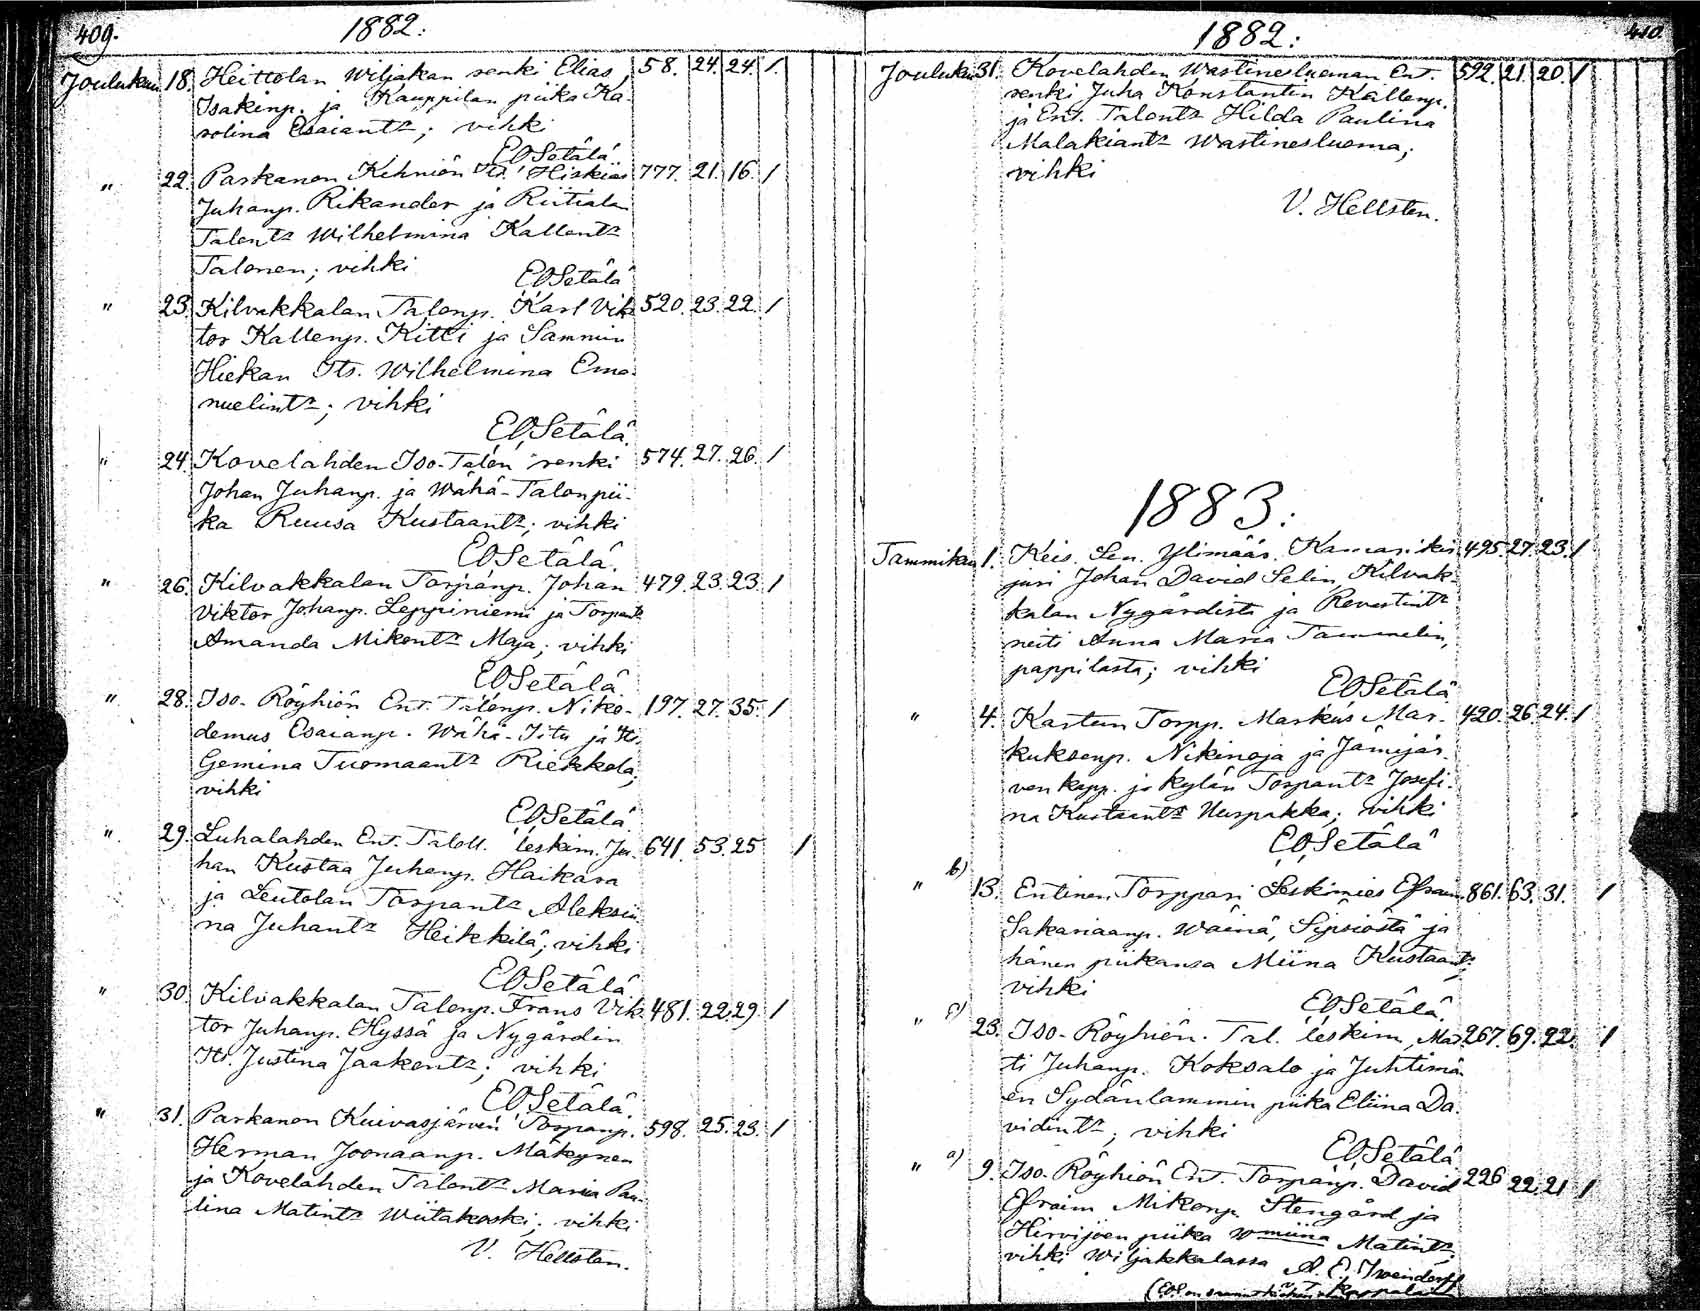 409.
1882:
Joulukuu 18. Heittolan Wiljakan renki Elias 58. 24. 24. 1.
Isakinp. ja Kauppilan piika Ka-
rolina Esaiantr; vihki
EOSetälä.
" 22. Parkanon Kihniön Its. Hiskias 777. 21. 16. 1
Juhanp. Rikander ja Riitialan
Talontr Wilhelmina Kallentr
Talonen; vihki
EOSetälä
" 23. Kilvakkalan Talonp. Karl Vik- 520. 23. 22. 1
tor Kallenp. Kitti ja Sammin
Hiekan Its. Wilhelmina Ema-
nuelintr; vihki
EOSetälä.
" 24. Kovelahden Iso-Talon renki 574. 27. 26. 1
Johan Juhanp. ja Wähä-Talon pii-
ka Ruusa Kustaantr; vihki
EOSetälä.
" 26. Kilvakkalan Torpanp. Johan 479. 23. 23. 1
Viktor Johanp. Leppiniemi ja Torpantr
Amanda Mikontr Maja; vihki
EOSetälä.
" 28. Iso-Röyhiön Ent. Talonp. Niko- 197. 27. 35. 1
demus Esaianp. Wähä-Iitu ja Its.
Gemina Tuomaantr Riekkola;
vihki
EOSetälä.
" 29. Luhalahden Ent. Taloll. leskim. Ju- 641. 53. 25. 1
han Kustaa Juhanp. Haikara
ja Leutolan Torpantr Aleksii-
na Juhantr Heikkilä; vihki
EOSetälä
" 30. Kilvakkalan Talonp. Frans Vik- 481. 22. 29. 1
tor Juhanp. Hyssä ja Nygårdin
Its. Justina Jaakontr; vihki
EOSetälä.
" 31. Parkanon Kuivasjärven Torpanp. 598. 25. 23. 1
Herman Joonaanp. Mäkynen
ja Kovelahden Talontr Maria Pau-
lina Matintr Wiitakoski; vihki
V. Hellsten.
410.
1882:
Joulukuu 31. Kovelahden Wastinesluoman Ent. 592. 21. 20. 1
renki Juha Konstantin Kallenp.
ja Ent. Talontr Hilda Paulina
Malakiantr Wastinesluoma;
vihki
V. Hellsten.
1883:
Tammikuu 1. Keis. Sen. Ylimäär. Kamari kir- 495. 27. 23. 1
juri Johan David Selin Kilvak-
kalan Nygårdista ja Rovastintr
neiti Anna Maria Tammelin,
pappilasta; vihki
EOSetälä
" 4. Kartun Torpp. Markus Mar- 420. 26. 24. 1
kuksenp. Nikinoja ja Jämijär-
ven kapp. ja kylän Torpantr Josefi-
na Kustaantr Uuspakka; vihki
EOSetälä
" b) 13. Entinen Torppari Leskimies Efraim 861. 63. 31. 1
Sakariaanp. Wäinä, Sipsiöstä ja
hänen piikansa Miina Kustaantr;
vihki
EOSetälä.
" c) 23. Iso-Röyhiön Tal. leskim. Mat- 267. 69. 22. 1
ti Juhanp. Koksalo ja Juhtimä-
en Sydänlammin piika Eliina Da-
vidintr; vihki
EOSetälä
" a) 9. Iso-Röyhiön Ent. Torpanp. David 226 22. 21 1
Efraim Mikonp. Stengård ja
Hirvijoen piika Wmiina Matintr;
vihki Wiljakkalassa A. E.